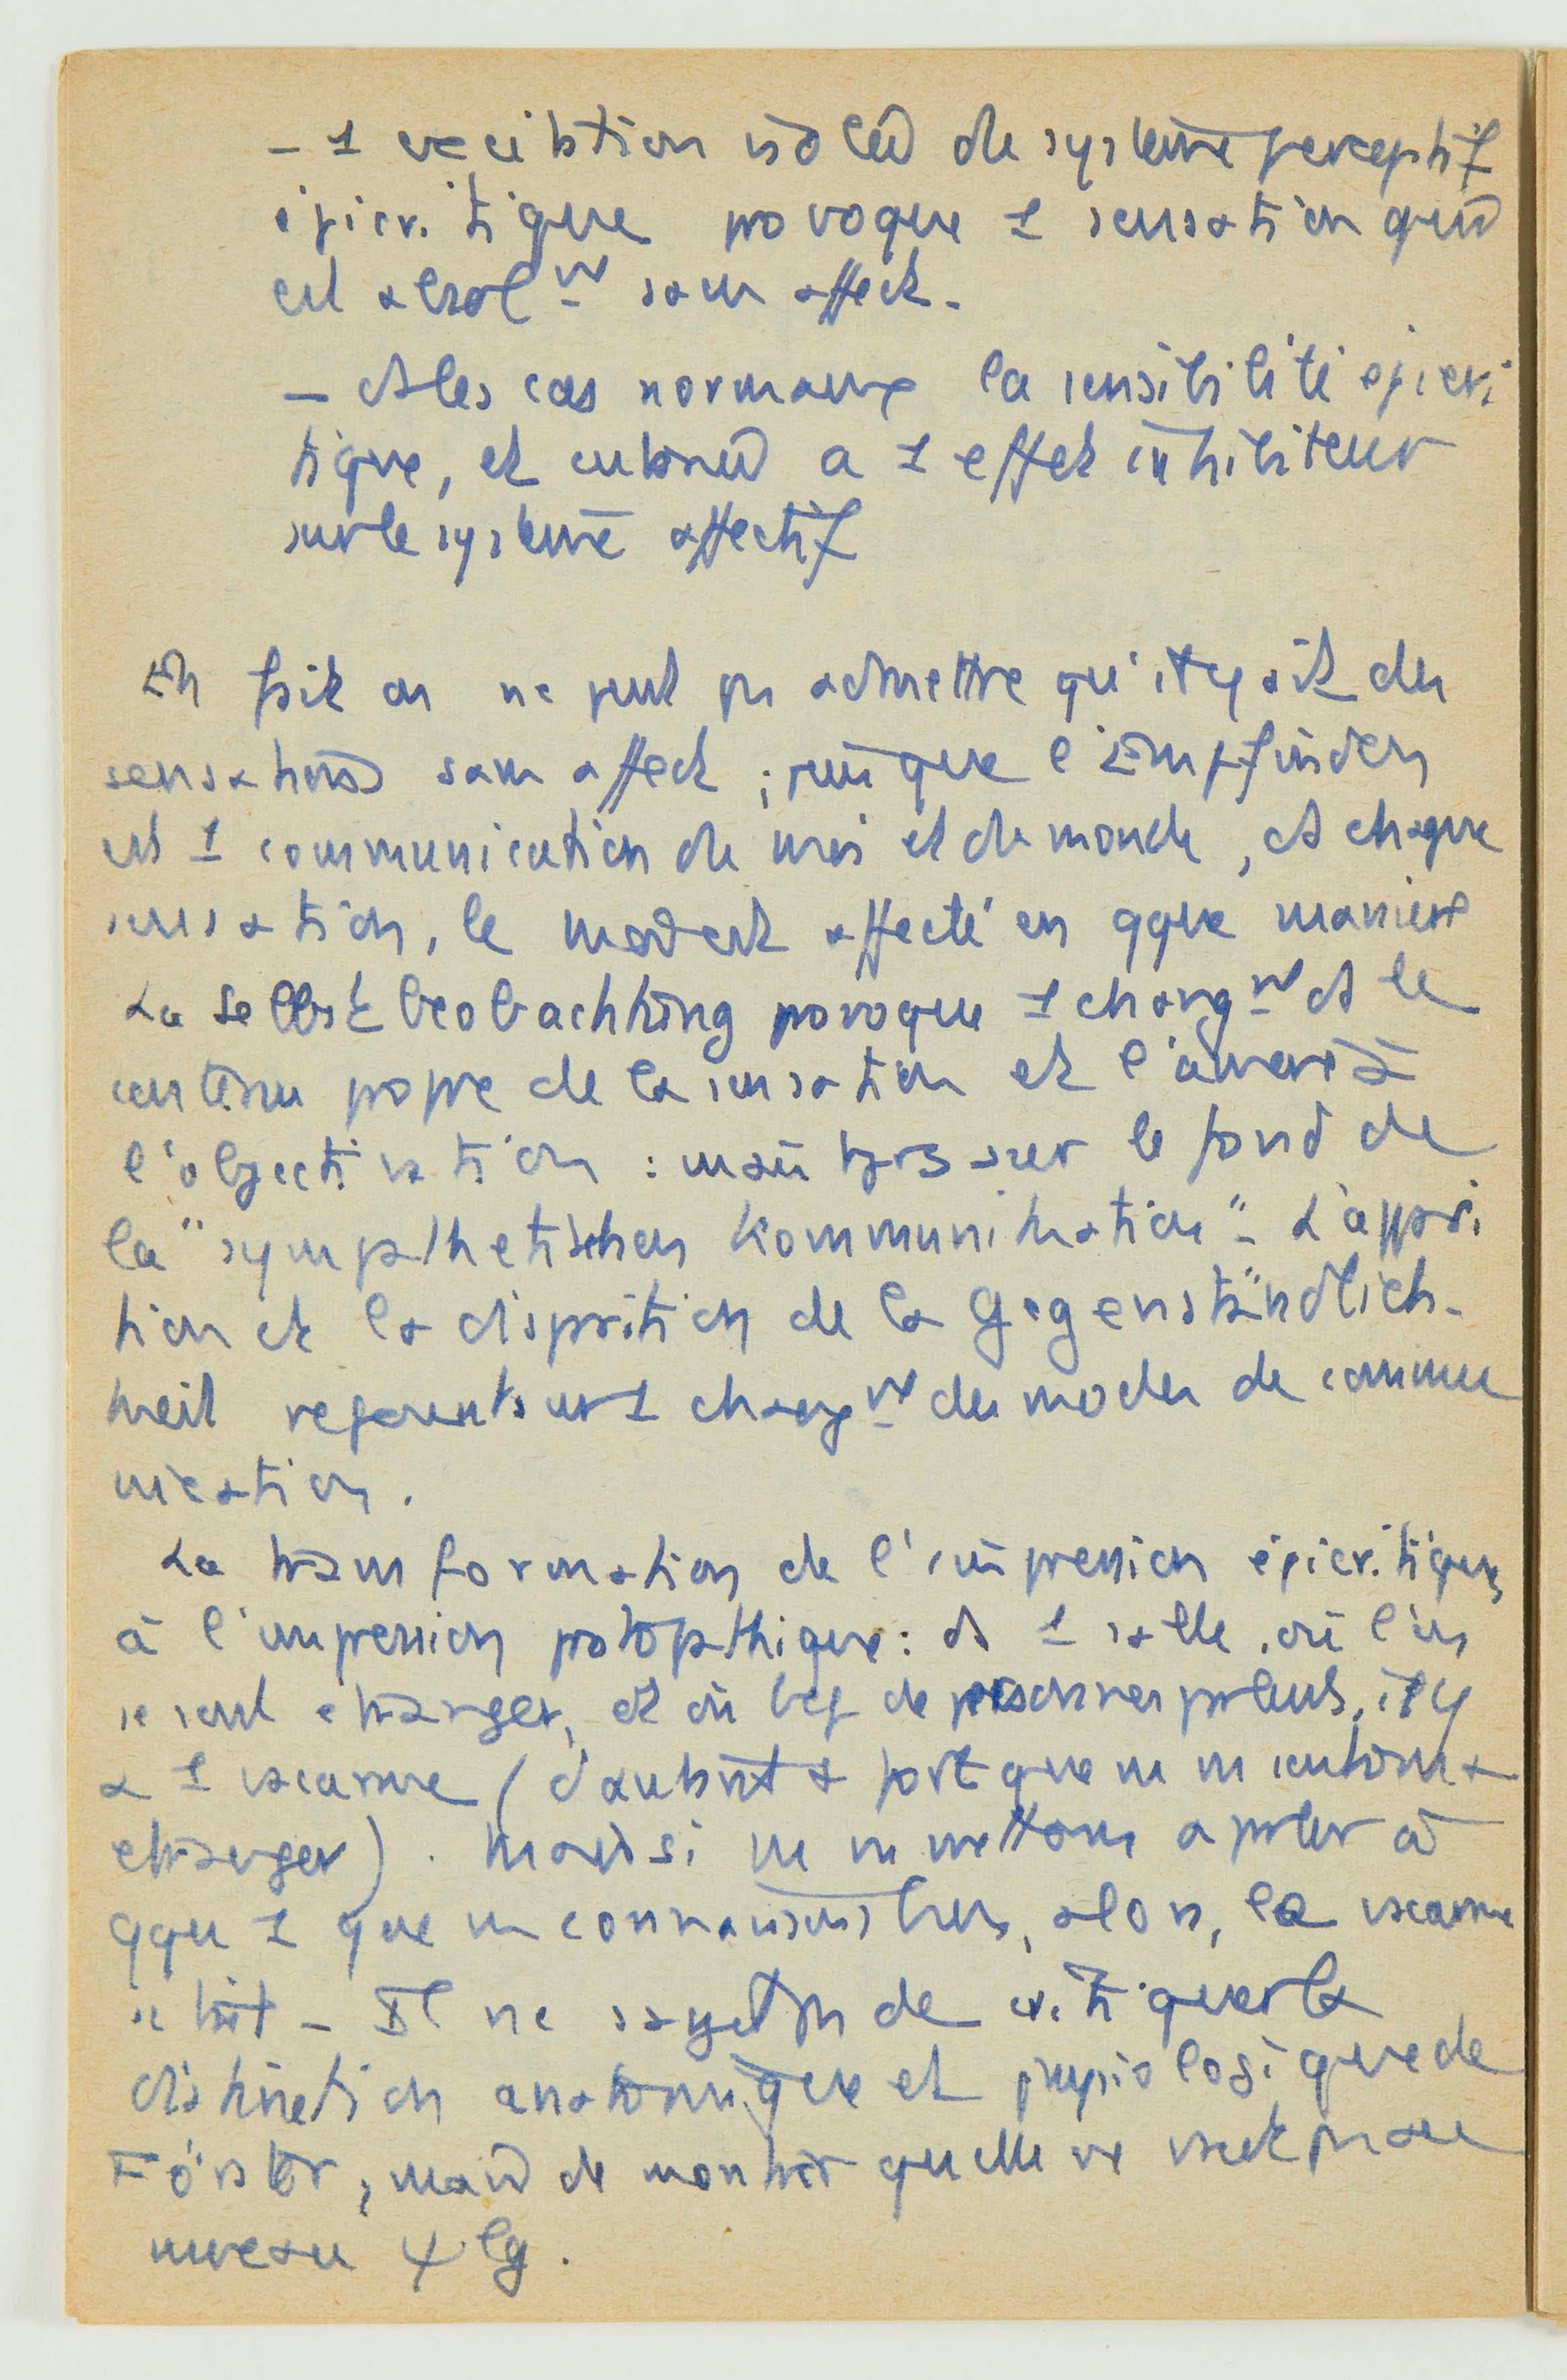 - 1 excitation isolée du système perceptif
épicritique provoque 1 sensation qui
est absolnt sans affect.
- ds les cas normaux la sensibilité épicri
tique, et cutanée a 1 effet inhibiteur
sur le système affectif
En fait on ne peut pas admettre qu'il y ait des
sensations sans affect ; puisque l'Empfinden
est 1 communication du moi et du monde, ds chaque
sensation, le moi est affecté en qque manière
La Selbstbeobachtung provoque 1 changnt ds le
contenu propre de la sensation et l'amène à
l'objectivation : mais tjrs sur le fond de
la "sympathetischen Kommunikation". L'appari
tion et la disparition de la Gegenständlich-
keit reposent sur 1 changnt des modes de commu
nication.
La transformation de l'impression épicritique,
à l'impression protopathique : ds 1 salle où l'on
se sent étranger, et où bcp de personnes parlent, il y
a 1 vacarme (d'autant + fort que ns ns sentons +
étranger). Mais si ns ns mettons à parler à
qqu 1 que ns connaissons bien, alors, le vacarme
se tait - Il ne s'agit pas de critiquer la
distinction anatomique et physiologique de
Förster, mais de montrer qu'elle ne vaut pas au
niveau ψ lg.